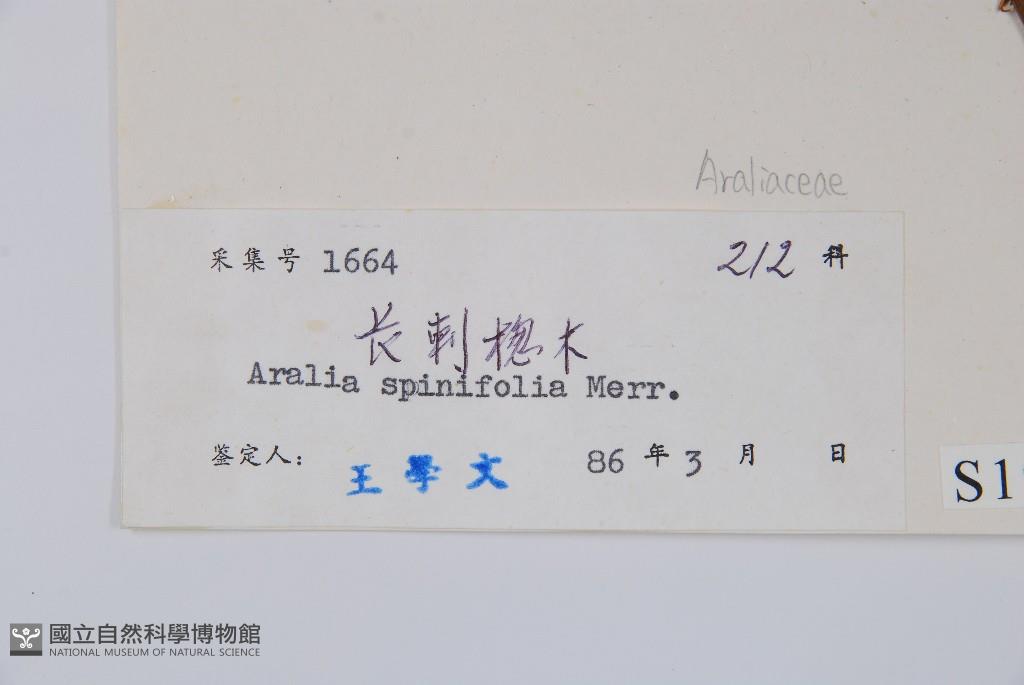 Araliaceae
采集号 1664 212 科
长刺楤木
Aralia spinifolia Merr.
鉴定人: 王學文 86 年 3 月 日
S1
國立自然科學博物館
NATIONAL MUSEUM OF NATURAL SCIENCE